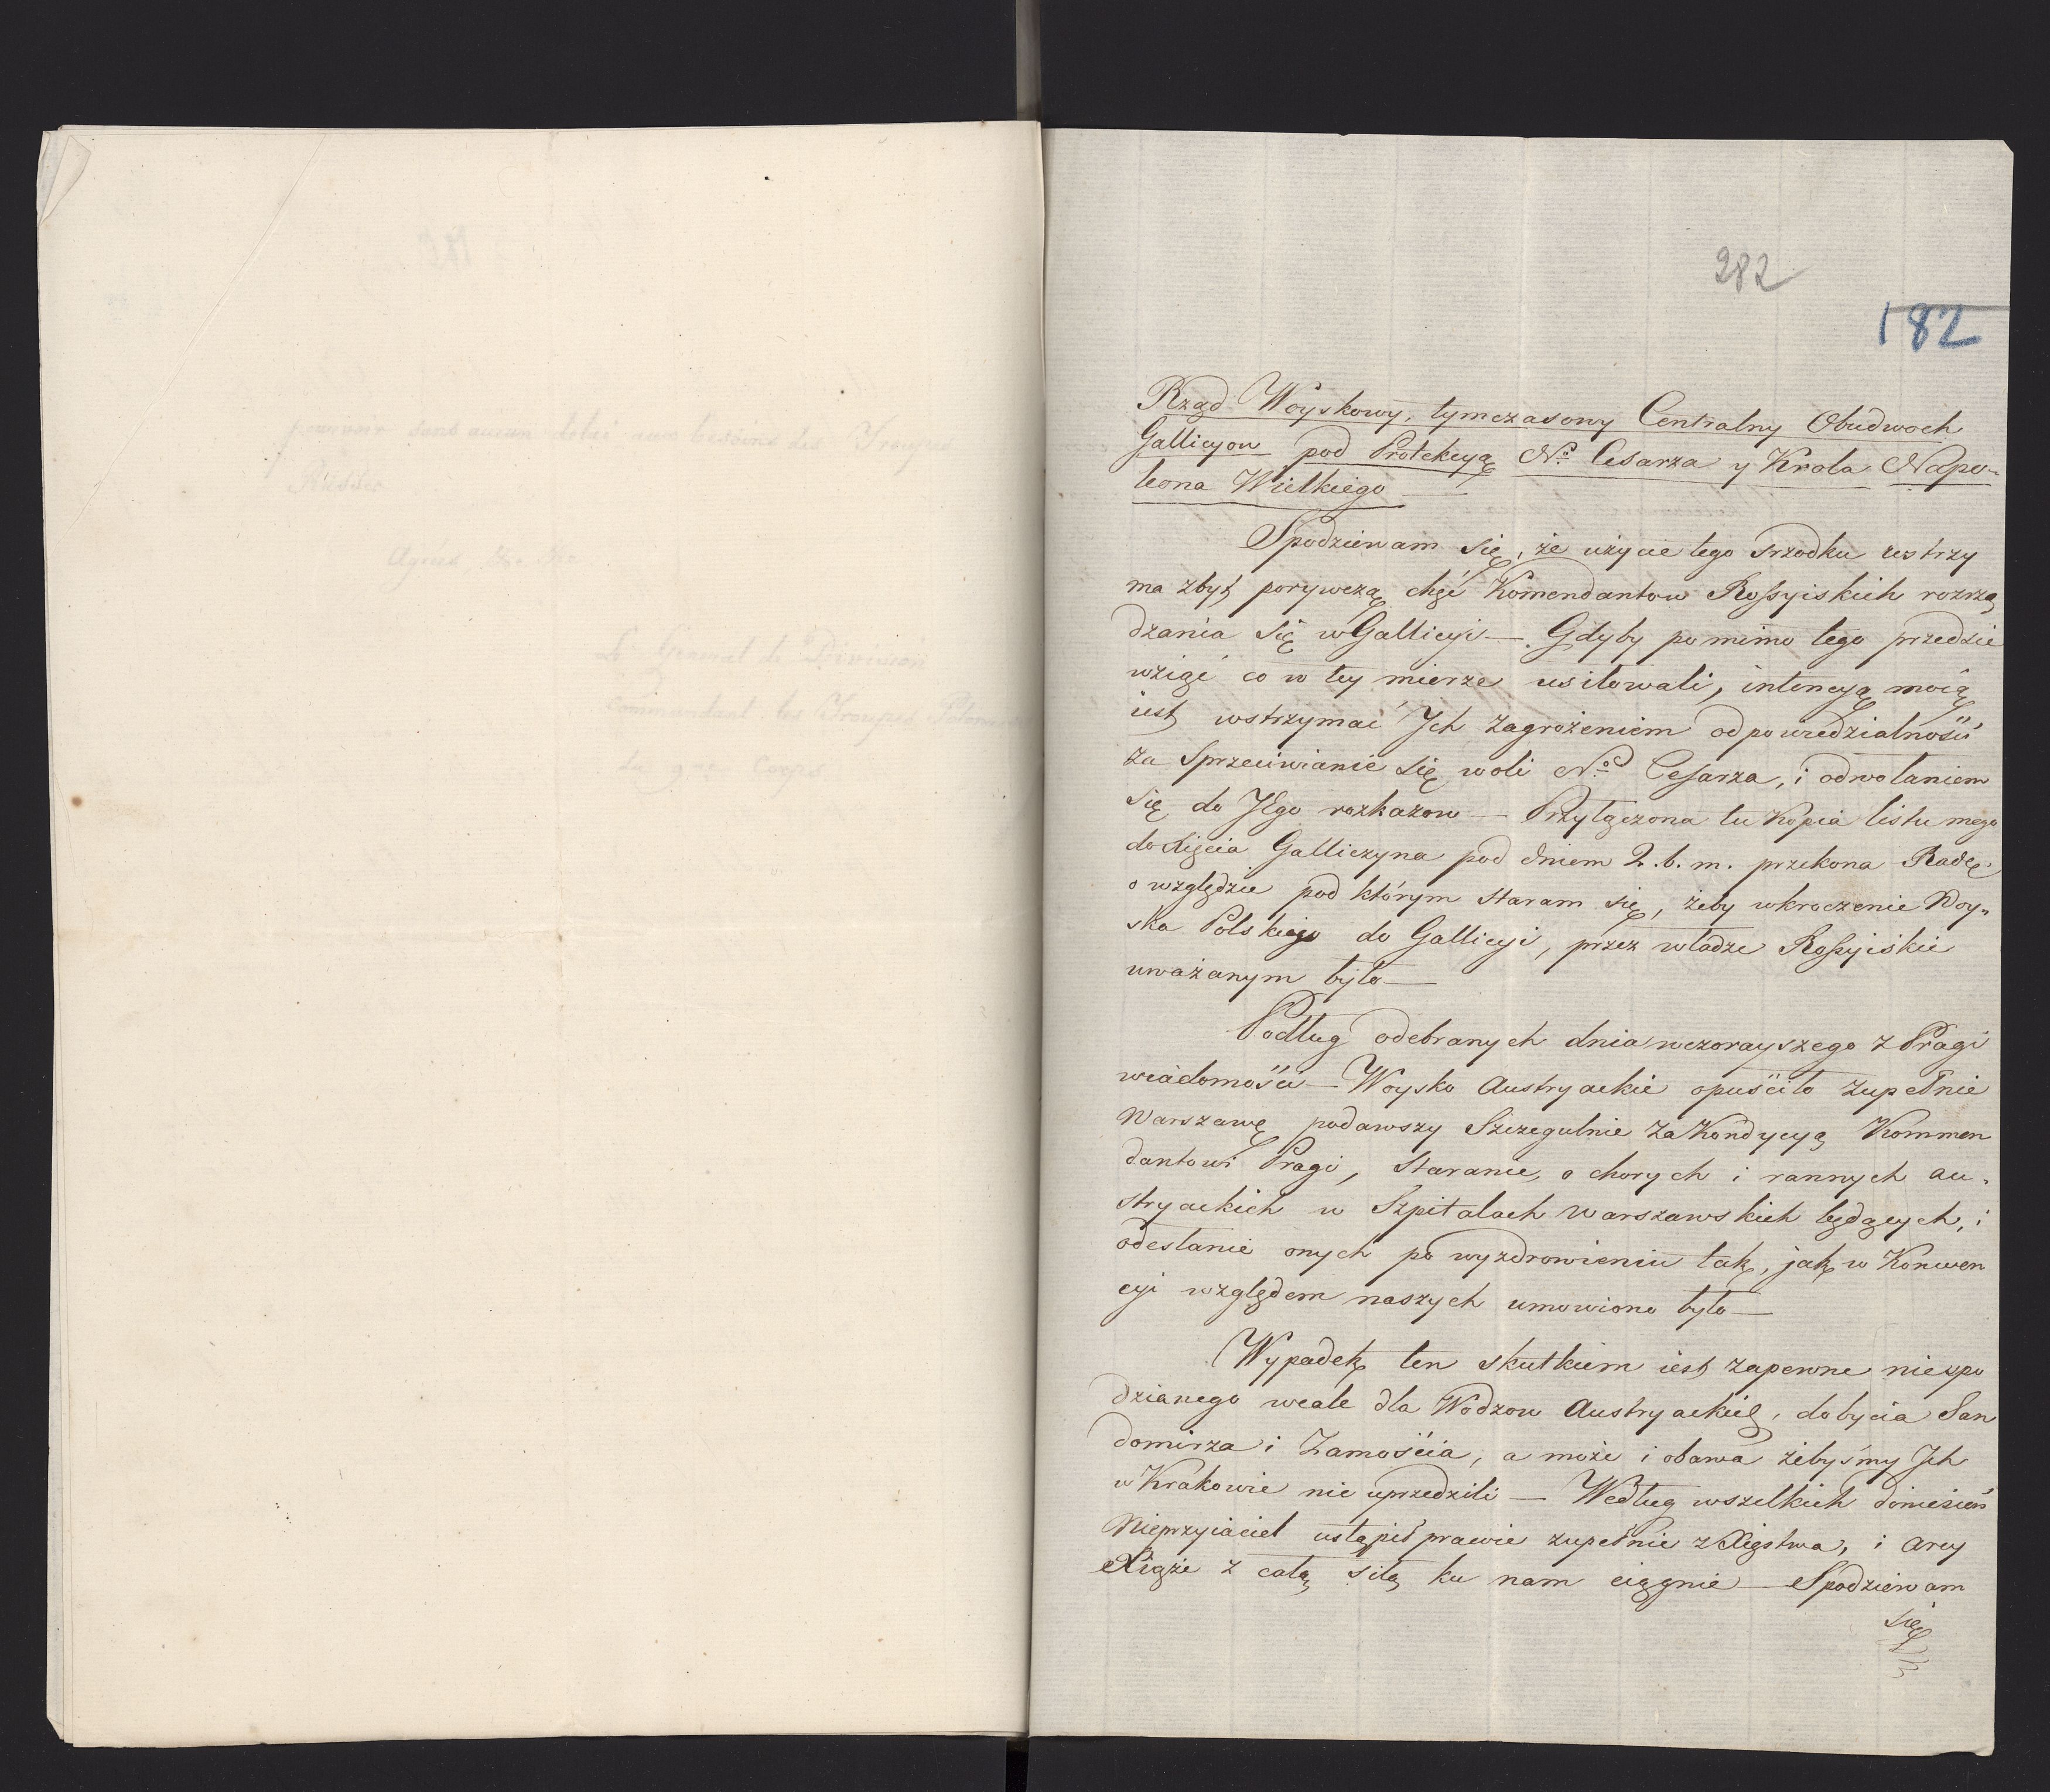 282
182
Rząd Woyskowy, tymczasowy Centralny Obudwoch
Gallicyow pod Protekcyą Nº Cesarza y Krola Napo-
leona Wielkiego
Spodziewam się, że użycie tego srzodku wstrzy
ma zbyt porywczą chęć Komendantow Rossyiskich rozrzą
dzania się w Gallicyi — Gdyby pomimo tego przedsie
wziąć co w tey mierze usiłowali, intencyą moią
iest wstrzymać Ich zagrożeniem odpowiedzialności
za sprzeciwianie się woli Nº Cesarza, i odwołaniem
się do JEgo rozkazow — Przyłączona tu Kopia listu mego
do Xięcia Galliczyna pod dniem 2. b. m. przekona Radę
o względzie pod którym staram się, żeby wkroczenie Woy-
ska Polskiego do Gallicyi, przez władze Rossyiskie
uważanym było —
Podług odebranych dnia wczorayszego z Pragi
wiadomości — Woysko Austryackie opuściło zupełnie
Warszawę podawszy Szczegulnie za Kondycyą Kommen
dantowi Pragi, staranie o chorych i rannych au-
stryackich w Szpitalach warszawskich lędących, i
odesłanie onych po wyzdrowieniu tak, jak w Konwen
cyi względem naszych umowiono było —
Wypadek ten skutkiem iest zapewne niespo
dzianego wcale dla Wodzow Austryackich, dobycia San
domirza i Zamościa, a może i obawa żebyśmy Ich
w Krakowie nie uprzedzili — Według wszelkich doniesień
Nieprzyiaciel ustąpił prawie zupełnie z Xięstwa, i Arcy
Xiąże z całą siłą ku nam ciągnie — Spodziewam
się